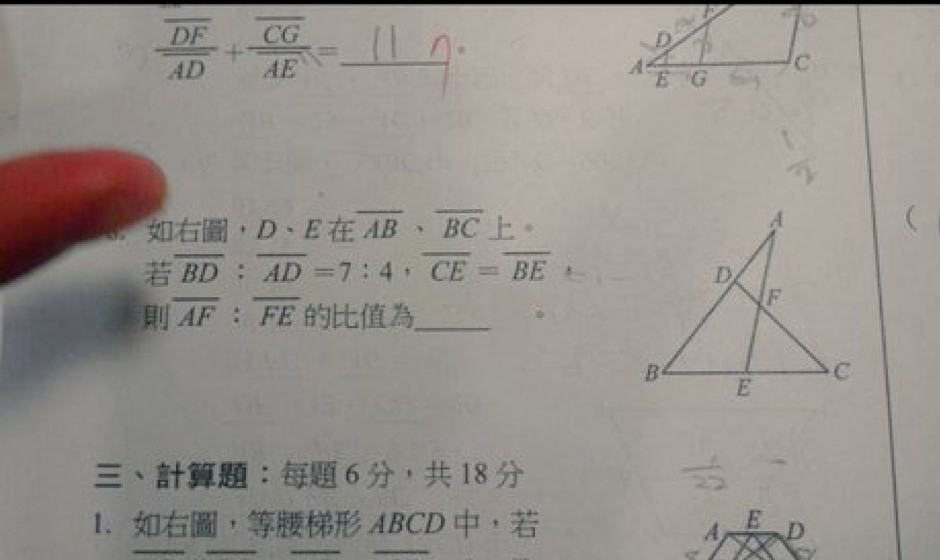 DF/AD + CG/AE = 11
A D E G C
如右圖,D、E 在 AB 、 BC 上。
若 BD : AD =7:4, CE = BE ,
則 AF : FE 的比值為______ 。
A
D
F
B
E
C
三、計算題:每題 6 分,共 18 分
1. 如右圖,等腰梯形 ABCD 中,若
A E D